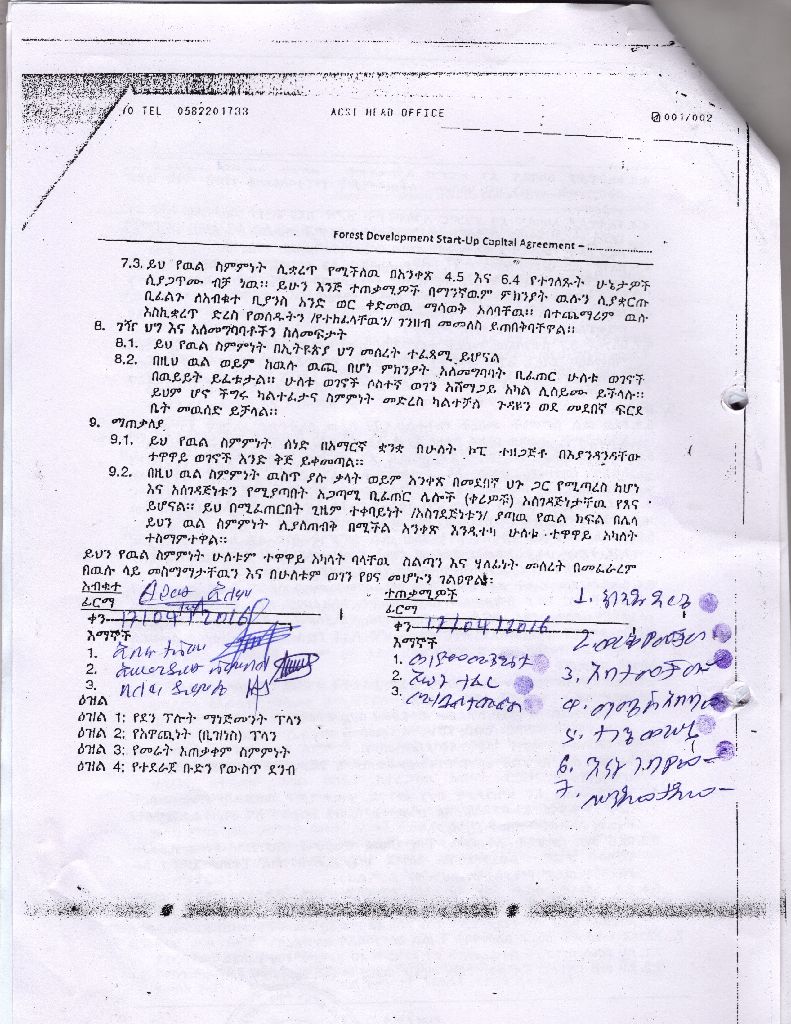 TEL 0582201733 ACSI HEAD OFFICE 001/002
Forest Development Start-Up Capital Agreement – ....................
7.3. ይህ የዉል ስምምነት ሊቋረጥ የሚችለዉ በአንቀጽ 4.5 እና 6.4 የተገለጹት ሁኔታዎች
ሲያጋጥሙ ብቻ ነዉ፡፡ ይሁን እንጅ ተጠቃሚዎች በማንኛዉም ምክንያት ዉሉን ሲያቋርጡ
ቢፈልጉ ለአብቁተ ቢያንስ አንድ ወር ቀድመዉ ማሳወቅ አለባቸዉ፡፡ በተጨማሪም ዉሉ
እስኪቋረጥ ድረስ የወሰዱትን /የተከፈላቸዉን/ ገንዘብ መመለስ ይጠበቅባቸዋል፡፡
8. ገዥ ህግ እና አለመግባባቶችን ስለመፍታት
8.1. ይህ የዉል ስምምነት በኢትዮጵያ ህግ መሰረት ተፈጻሚ ይሆናል
8.2. በዚህ ዉል ወይም ከዉሉ ዉጪ በሆነ ምክንያት አለመግባባት ቢፈጠር ሁለቱ ወገኖች
በዉይይት ይፈቱታል፡፡ ሁለቱ ወገኖች ሶስተኛ ወገን አሸማጋይ አካል ሊሰይሙ ይችላሉ፡፡
ይህም ሆኖ ችግሩ ካልተፈታና ስምምነት መድረስ ካልተቻለ ጉዳዩን ወደ መደበኛ ፍርድ
ቤት መዉሰድ ይቻላል፡፡
9. ማጠቃለያ
9.1. ይህ የዉል ስምምነት ሰነድ በአማርኛ ቋንቋ በሁለት ኮፒ ተዘጋጅቶ በእያንዳንዳቸው
ተዋዋይ ወገኖች አንድ ቅጅ ይቀመጣል፡፡
9.2. በዚህ ዉል ስምምነት ዉስጥ ያሉ ቃላት ወይም አንቀጽ በመደበኛ ህጉ ጋር የሚጣረስ ከሆነ
እና አስገዳጅነቱን የሚያጣበት አጋጣሚ ቢፈጠር ሌሎች (ቀሪዎቹ) አስገዳጅነታቸዉ የጸና
ይሆናል፡፡ ይህ በሚፈጠርበት ጊዜም ተቀባይነት /አስገዳጅነቱን/ ያጣዉ የዉል ክፍል በሌላ
ይህን ዉል ስምምነት ሊያስጠብቅ በሚችል አንቀጽ እንዲተካ ሁለቱ ተዋዋይ አካላት
ተስማምተዋል፡፡
ይህን የዉል ስምምነት ሁለቱም ተዋዋይ አካላት ባላቸዉ ስልጣን እና ሃላፊነት መሰረት በመፈራረም
በዉሉ ላይ መስማማታቸዉን እና በሁለቱም ወገን የፀና መሆኑን ገልፀዋል፡
አብቁተ
ፊርማ
ቀን 17/04/2016
እማኞች
1.
2.
3.
ተጠቃሚዎች
ፊርማ
ቀን 17/04/2016
እማኞች
1.
2.
3.
1.
2.
3.
4.
5.
6.
7.
ዕዝል
ዕዝል 1: የደን ፕሎት ማነጅመንት ፕላን
ዕዝል 2: የአዋጪነት (ቢዝነስ) ፕላን
ዕዝል 3: የመሬት አጠቃቀም ስምምነት
ዕዝል 4: የተደራጀ ቡድን የውስጥ ደንብ